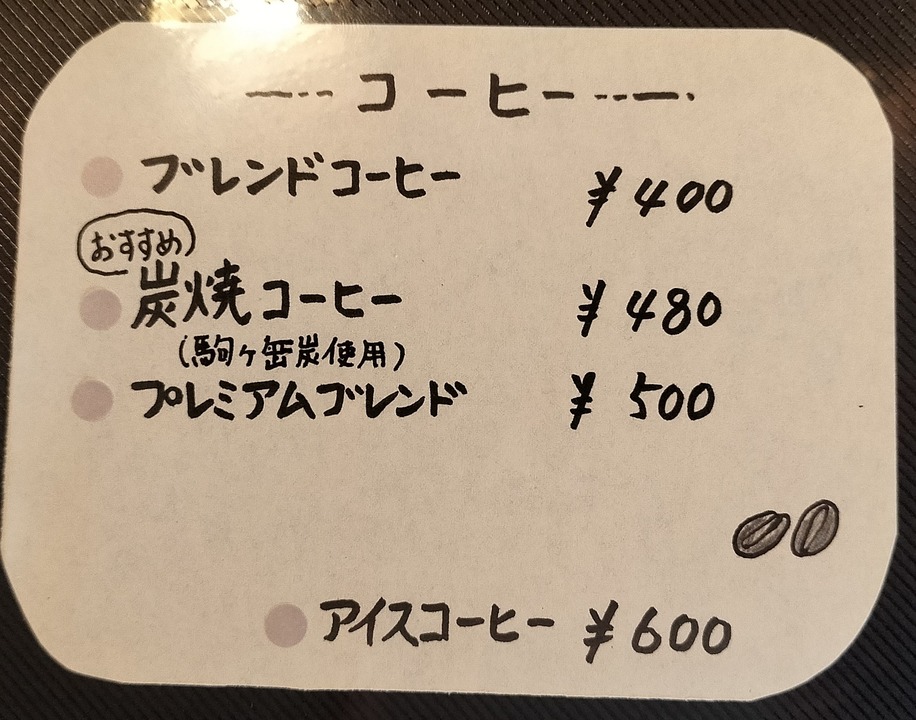 コーヒー
ブレンドコーヒー ¥400
おすすめ
炭焼コーヒー ¥480
(駒ヶ岳炭使用)
プレミアムブレンド ¥500
アイスコーヒー ¥600